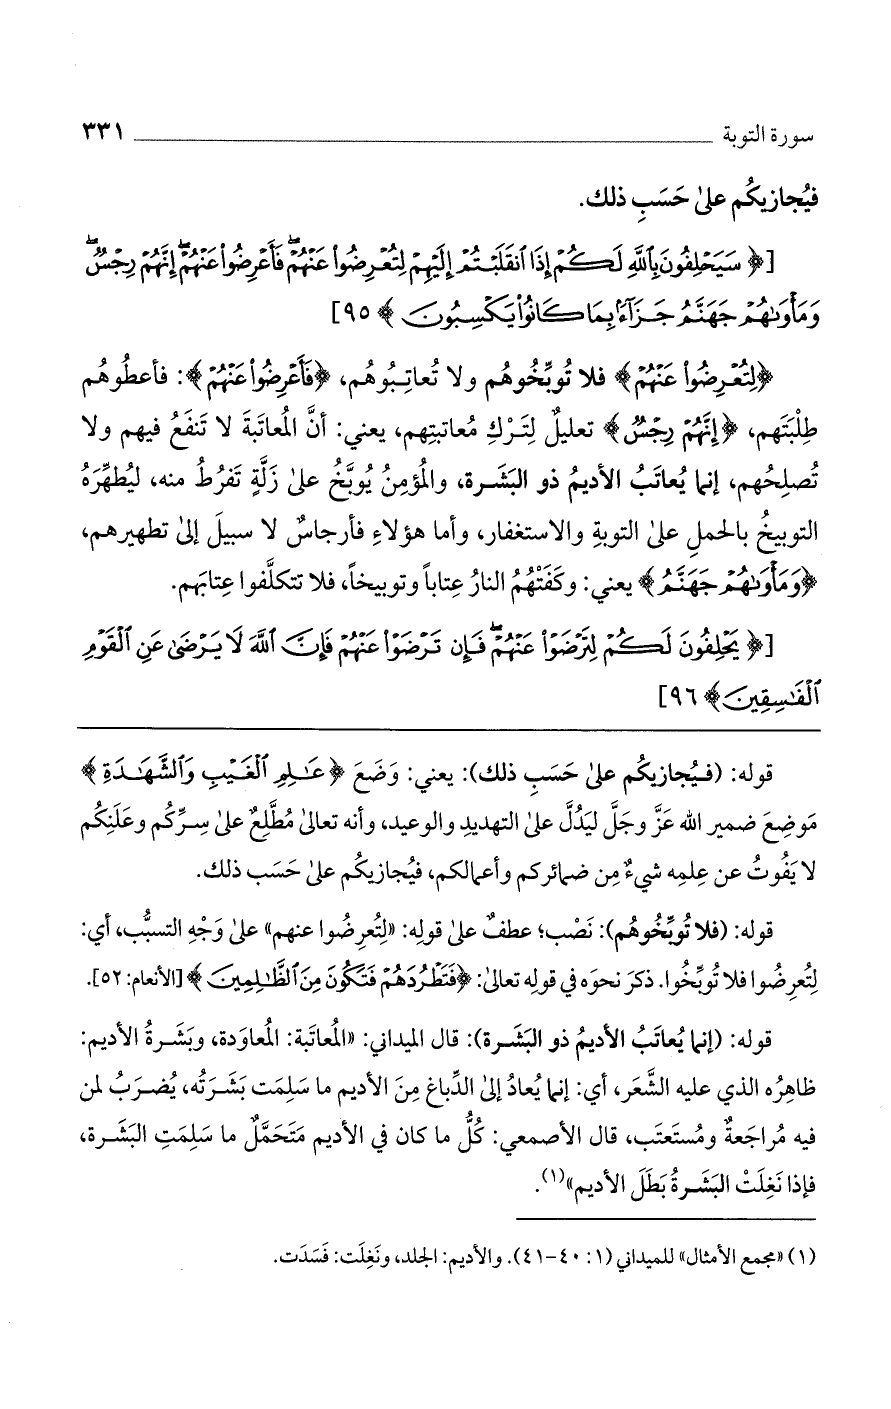 سورة التوبة ٣٣١
فيُجازيكُم علىٰ حَسَبِ ذلك.
[﴿ سَيَحْلِفُونَ بِٱللَّهِ لَكُمْ إِذَا ٱنقَلَبْتُمْ إِلَيْهِمْ لِتُعْرِضُوا۟ عَنْهُمْ ۖ فَأَعْرِضُوا۟ عَنْهُمْ ۖ إِنَّهُمْ رِجْسٌ ۖ
وَمَأْوَىٰهُمْ جَهَنَّمُ جَزَآءًۢ بِمَا كَانُوا۟ يَكْسِبُونَ ﴾ ٩٥]
﴿لِتُعْرِضُوا۟ عَنْهُمْ﴾ فلا تُوبِّخُوهُم ولا تُعاتِبُوهُم، ﴿فَأَعْرِضُوا۟ عَنْهُمْ﴾: فأعطُوهُم
طِلْبَتَهم، ﴿إِنَّهُمْ رِجْسٌ﴾ تعليلٌ لِتَرْكِ مُعاتبتِهم، يعني: أنَّ المُعاتَبَةَ لا تَنفَعُ فيهم ولا
تُصلِحُهم، إنما يُعاتَبُ الأديمُ ذو البَشَرة، والمُؤمِنُ يُوبَّخُ علىٰ زَلَّةٍ تَفرُطُ منه، ليُطهِّرَهُ
التوبيخُ بالحملِ علىٰ التوبةِ والاستغفار، وأما هؤلاءِ فأرجاسٌ لا سبيلَ إلىٰ تطهيرهم،
﴿وَمَأْوَىٰهُمْ جَهَنَّمُ﴾ يعني: وكَفَتْهُمُ النارُ عِتاباً وتوبيخاً، فلا تتكلَّفوا عِتابَهم.
[﴿ يَحْلِفُونَ لَكُمْ لِتَرْضَوْا۟ عَنْهُمْ ۖ فَإِن تَرْضَوْا۟ عَنْهُمْ فَإِنَّ ٱللَّهَ لَا يَرْضَىٰ عَنِ ٱلْقَوْمِ
ٱلْفَـٰسِقِينَ﴾ ٩٦]
قوله: (فيُجازيكُم علىٰ حَسَبِ ذلك): يعني: وَضَعَ ﴿عَـٰلِمِ ٱلْغَيْبِ وَٱلشَّهَـٰدَةِ ﴾
مَوضِعَ ضمير الله عَزَّ وجَلَّ ليَدُلَّ علىٰ التهديدِ والوعيد، وأنه تعالىٰ مُطَّلِعٌ علىٰ سِرِّكُم وعَلَنِكُم
لا يَفُوتُ عن عِلمِه شيءٌ مِن ضمائركم وأعمالكم، فيُجازيكُم علىٰ حَسَب ذلك.
قوله: (فلا تُوبِّخُوهُم): نَصْب؛ عطفٌ علىٰ قولِه: «لِتُعرِضُوا عنهم» علىٰ وَجْهِ التسبُّب، أي:
لِتُعرِضُوا فلا تُوبِّخُوا. ذكرَ نحوَه في قولِه تعالىٰ: ﴿فَتَطْرُدَهُمْ فَتَكُونَ مِنَ ٱلظَّـٰلِمِينَ ﴾ [الأنعام: ٥٢].
قوله: (إنما يُعاتَبُ الأديمُ ذو البَشَرة): قال الميداني: «المُعاتَبة: المُعاوَدة، وبَشَرةُ الأديم:
ظاهِرُه الذي عليه الشَّعَر، أي: إنما يُعادُ إلىٰ الدِّباغِ مِنَ الأديم ما سَلِمَت بَشَرَتُه، يُضرَبُ لمن
فيه مُراجَعةٌ ومُستَعتَب، قال الأصمعي: كُلُّ ما كان في الأديم مَتَحَمَّلٌ ما سَلِمَتِ البَشَرة،
فإذا نَغِلَتْ البَشَرةُ بَطَلَ الأديم»(١).
(١) «مجمع الأمثال» للميداني (١: ٤٠-٤١). والأديم: الجلد، ونَغِلَت: فَسَدَت.